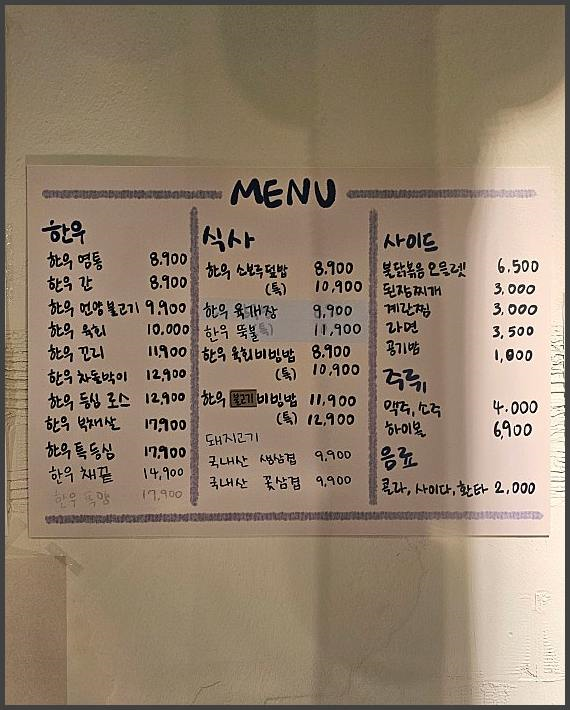 MENU
한우
한우 염통 8,900
한우 간 8,900
한우 언양불고기 9,900
한우 육회 10,000
한우 꼬리 11,900
한우 차돌박이 12,900
한우 등심 로스 12,900
한우 부채살 17,900
한우 특등심 17,900
한우 채끝 14,900
한우 17,900
식사
한우 소보루덮밥 8,900
(특) 10,900
한우 육개장 9,900
한우 뚝불(특) 11,900
한우 육회비빔밥 8,900
(특) 10,900
한우 불고기비빔밥 11,900
(특) 12,900
돼지고기
국내산 생삼겹 9,900
국내산 꽃삼겹 9,900
사이드
불닭볶음 오믈렛 6,500
된장찌개 3,000
계란찜 3,000
라면 3,500
공기밥 1,000
주류
맥주, 소주 4.000
하이볼 6,900
음료
콜라, 사이다, 환타 2,000